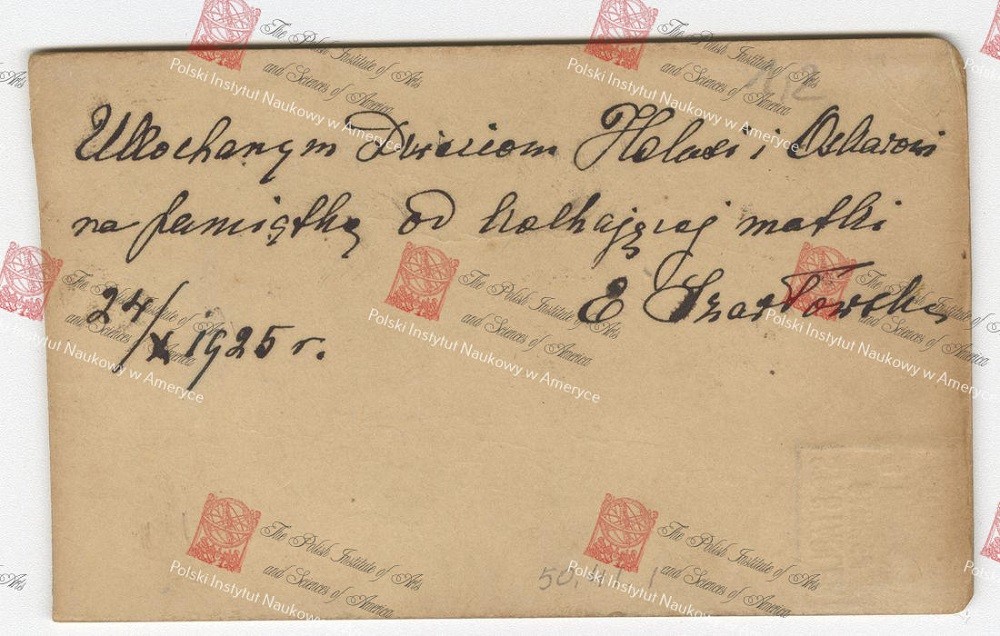 The Polish Institute of Arts
and Sciences of America
Polski Instytut Naukowy w Ameryce
The Polish Institute of Arts
and Sciences of America
Polski Instytut Naukowy w Ameryce
Ukochanym Dzieciom Helusi i Oskarowi
na pamiątkę od kochającej matki
E Szarłowska
24/X 1925 r.
The Polish Institute of Arts
and Sciences of America
Polski Instytut Naukowy w Ameryce
The Polish Institute of Arts
and Sciences of America
Polski Instytut Naukowy w Ameryce
The Polish Institute of Arts
and Sciences of America
Polski Instytut Naukowy w Ameryce
The Polish Institute of Arts
and Sciences of America
Polski Instytut Naukowy w Ameryce
The Polish Institute of Arts
and Sciences of America
Polski Instytut Naukowy w Ameryce